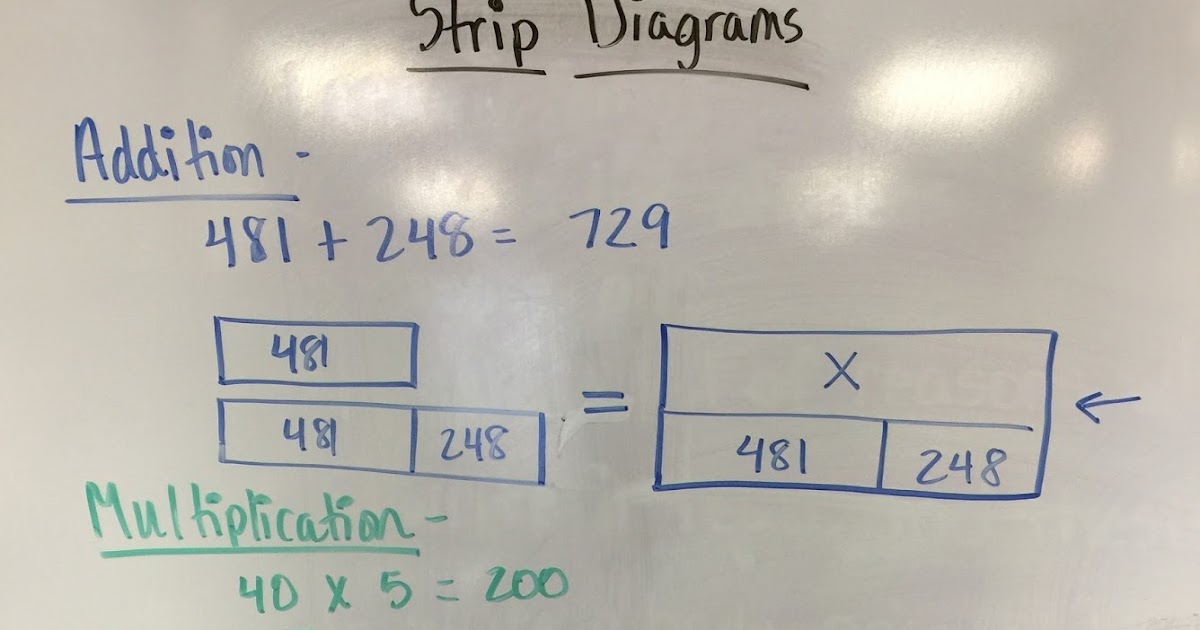 Strip Diagrams
Addition -
481 + 248 = 729
481
481 248
=
X
481 248
←
Multiplication -
40 x 5 = 200